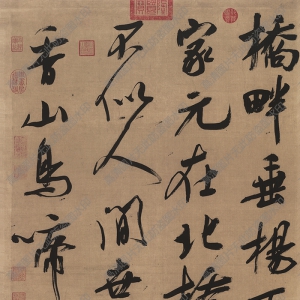 橋畔垂楊下
家元在北橋
不似人間世
香山鳥啼